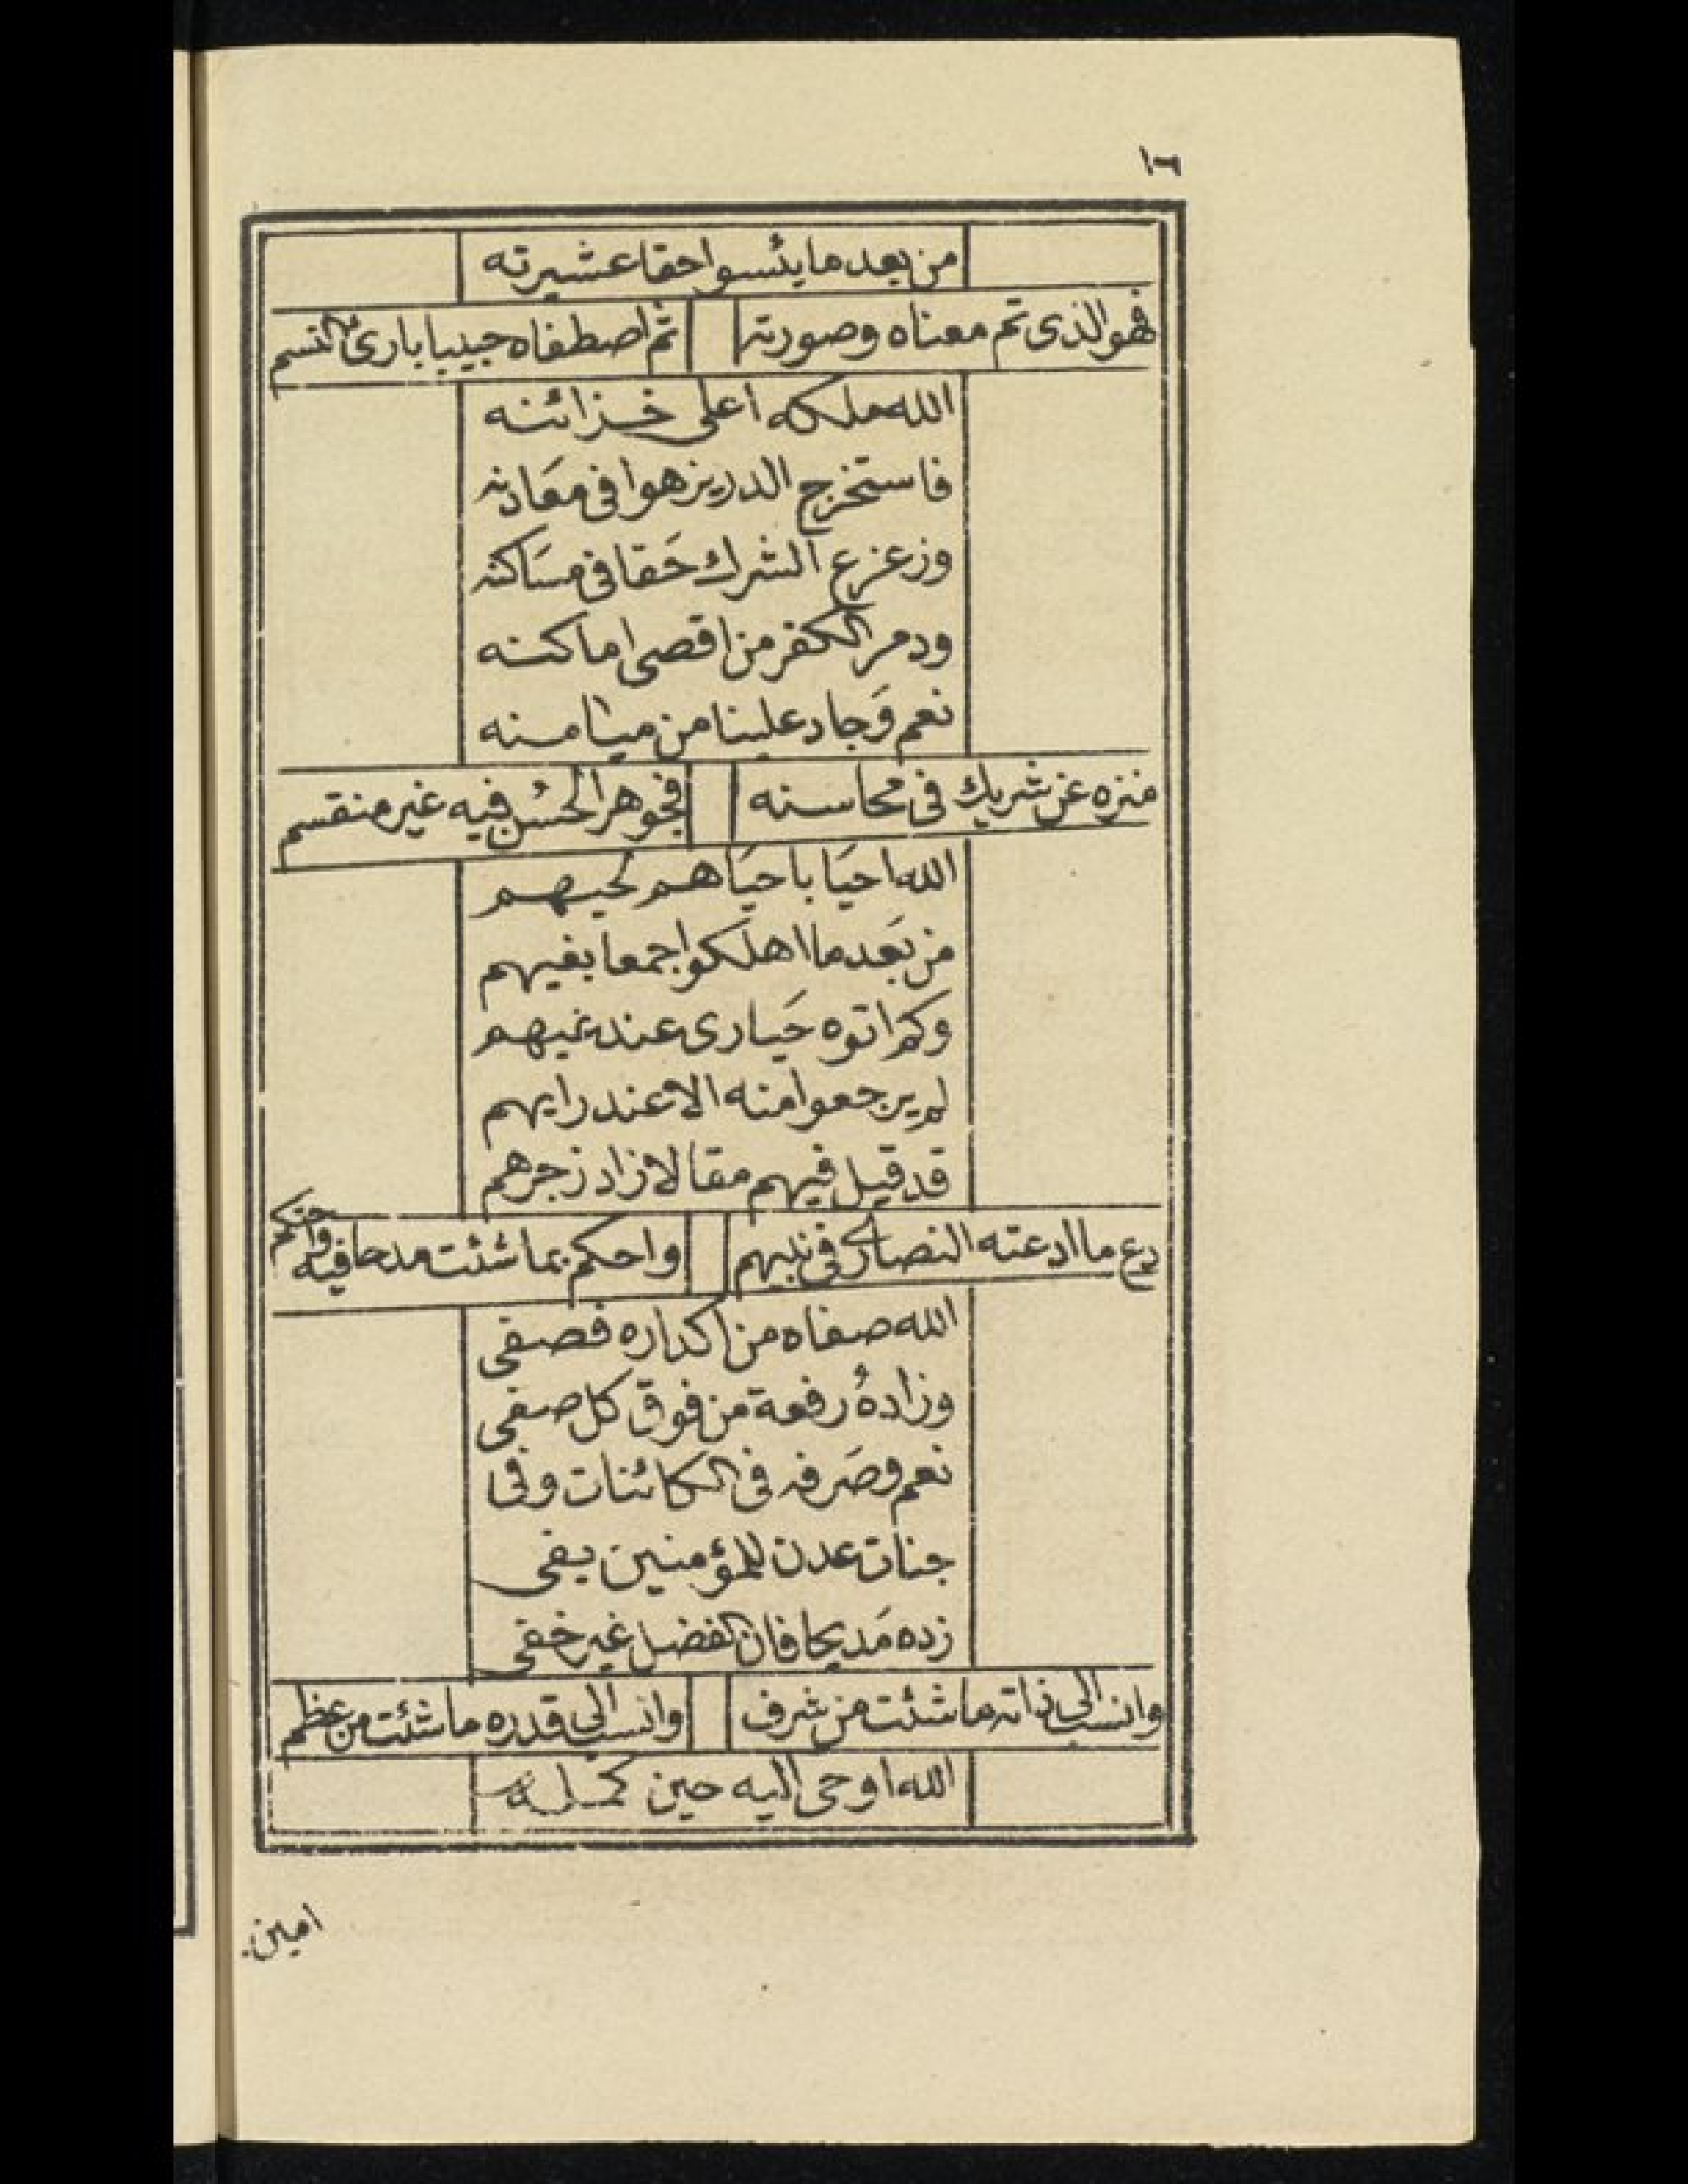 ١٦
من بعد ما يئسوا حقا عشيرته
فهو الذى تم معناه وصورته ثم اصطفاه حبيبا بارئ النسم
الله ملكه اعلى خزائنه
فاستخرج الدر يزهوا فى معَادنه
وزعزع الشرك حَقا فى مسَاكنه
ودمر الكفر من اقصى اماكنه
نعم وَجاد علينا من ميامنه
منزه عن شريك فى محاسنه فجوهر الحسُن فيه غير منقسم
الله احيَا باحيَاهم لحيهم
من بَعد ما اهلكوا جمعا بغيهم
وكم اتوه حَيارى عند غيهم
لم يرجعوا منه الا عند رايهم
قد قيل فيهم مقالا زاد زجرهم
دع ما ادعته النصارى فى نبيهم واحكم بما شئت مدحا فيه واحتكم
الله صفاه من اكداره فصفى
وزادهُ رفعة من فوق كل صفى
نعم وصَرفه فى الكائنات وفى
جنات عدن للمؤمنين يفى
زده مَديحا فان الفضل غير خفى
وانسب الى ذاته ما شئت من شرف وانسب الى قدره ما شئت من عظم
الله اوحى اليه حين كمله
امين